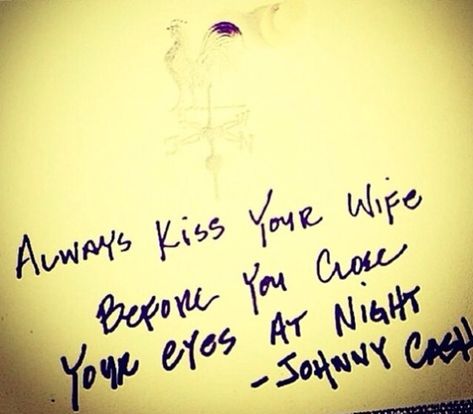 ALWAYS KISS YOUR WIFE
BEFORE YOU CLOSE
YOUR EYES AT NIGHT
-JOHNNY CASH